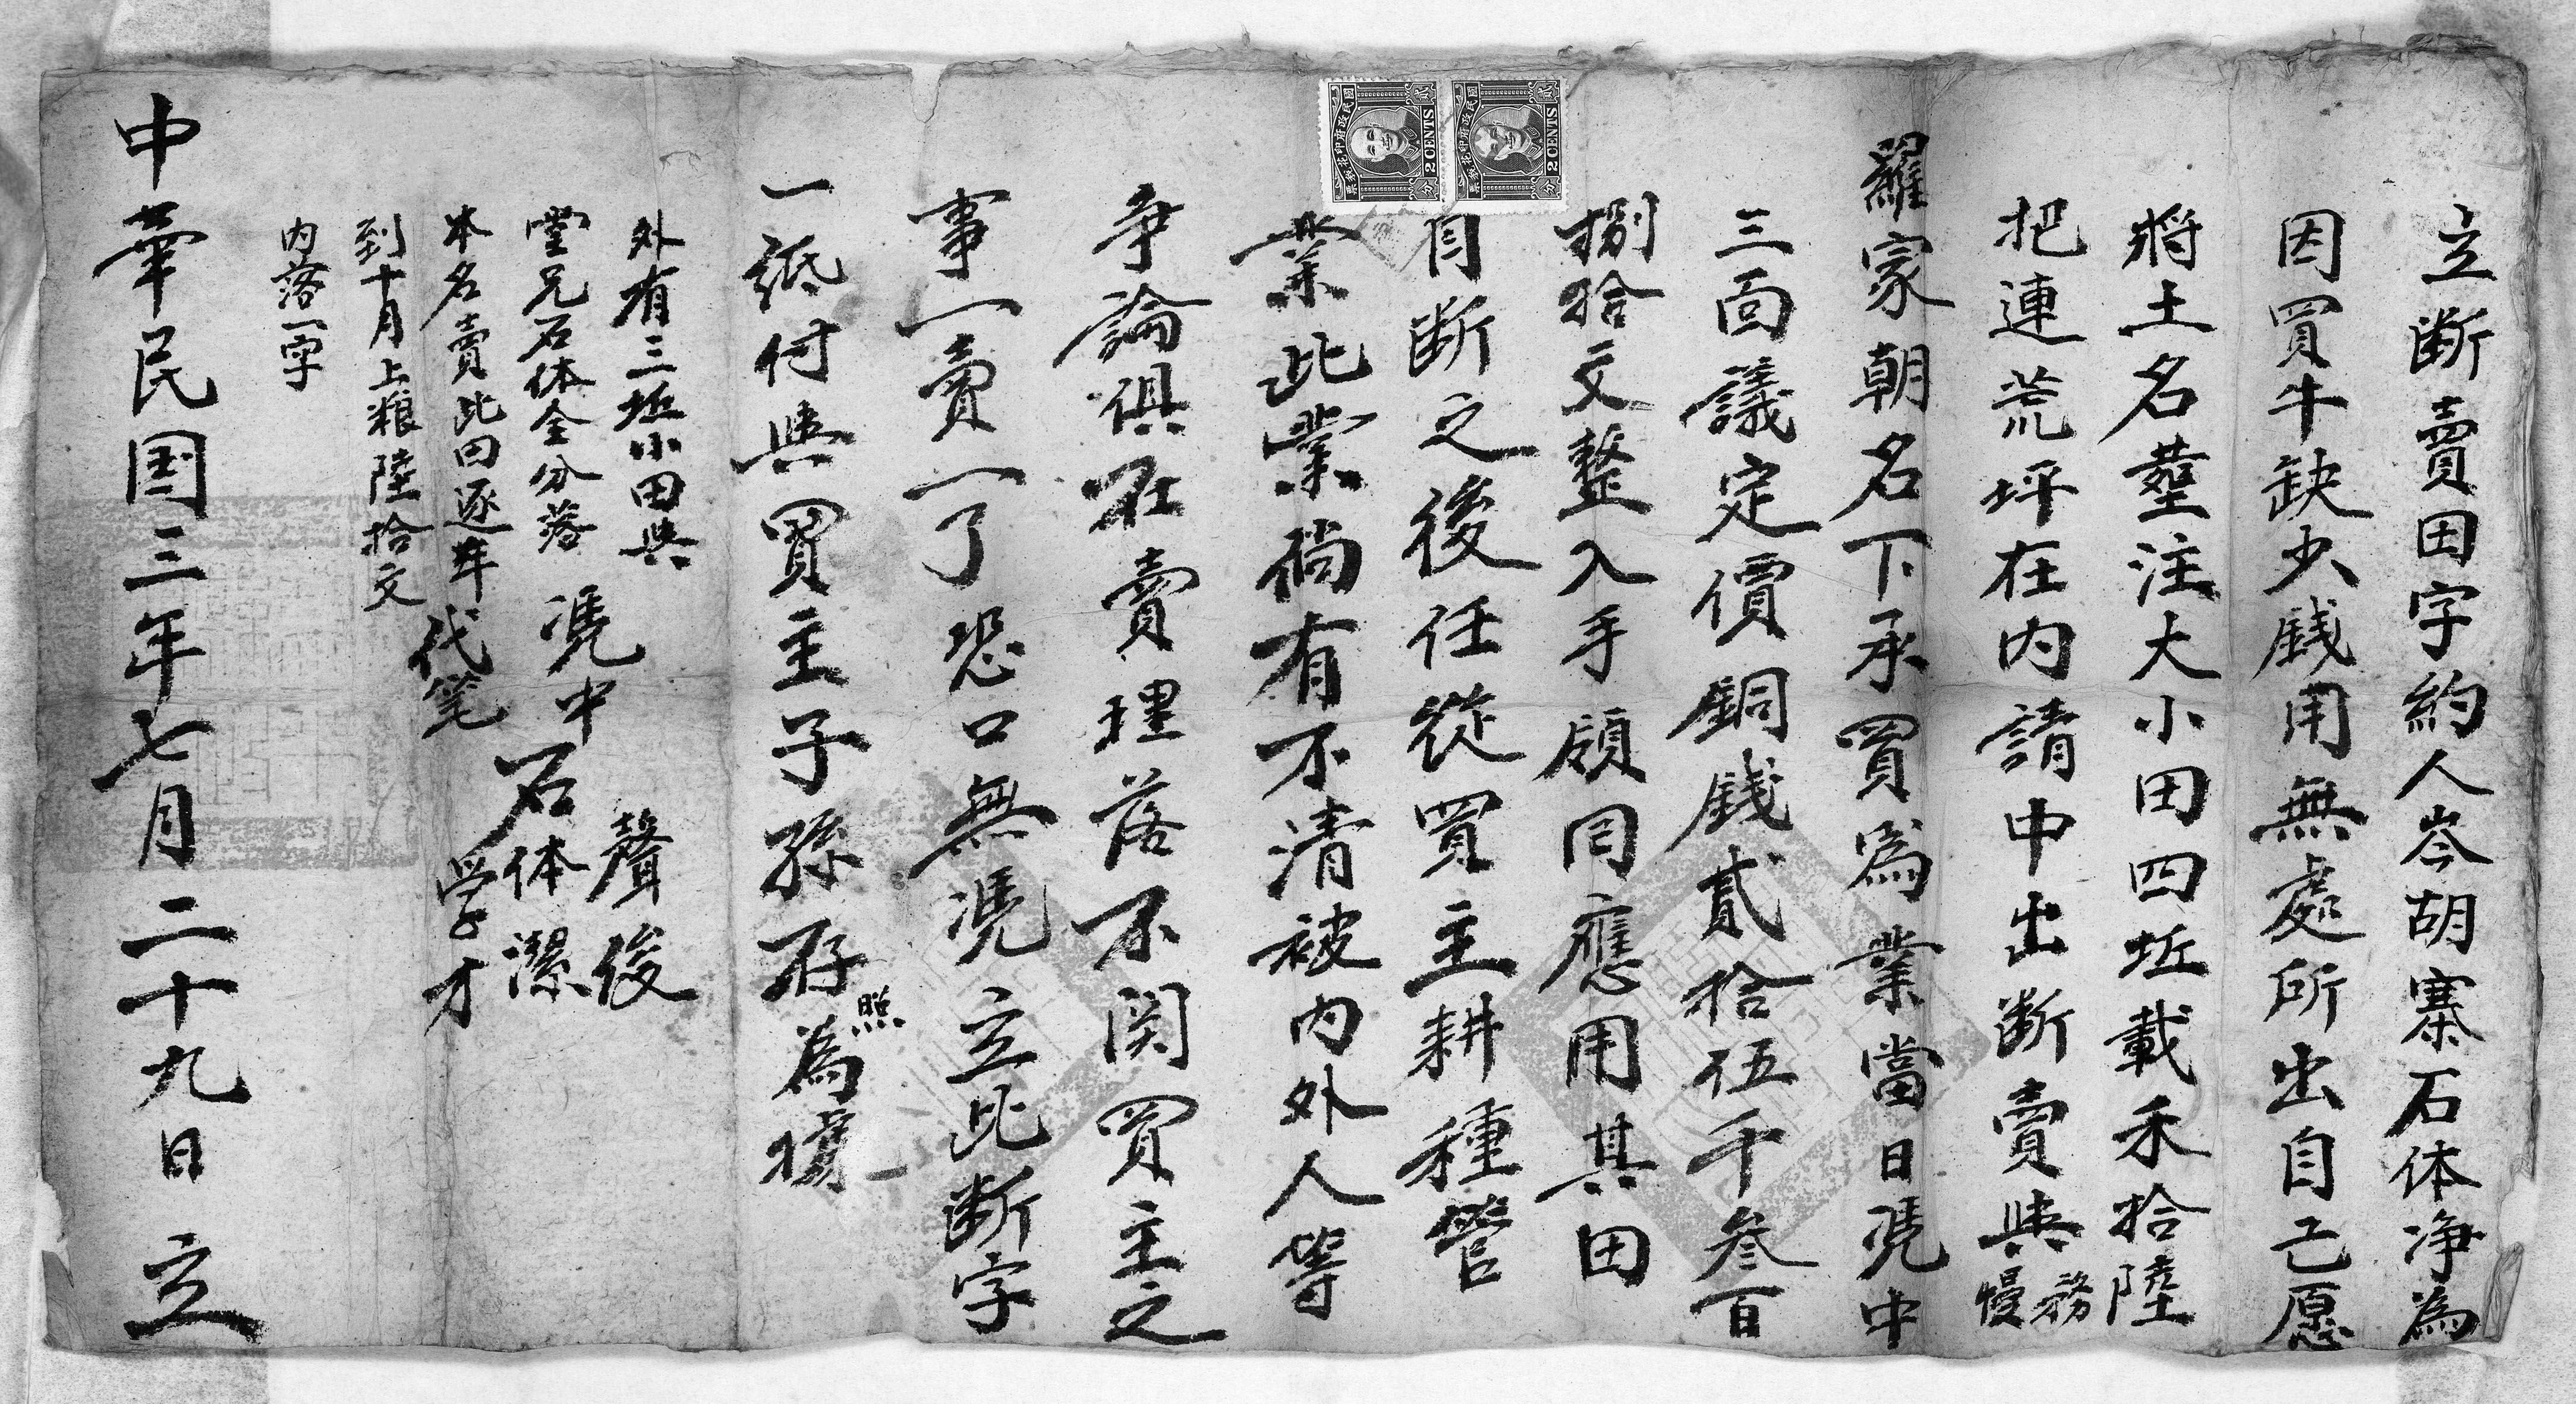 立断賣田字約人岑胡寨石体净為
因買牛缺少銭用無處所出自己愿
將土名蓙注大小田四坵載禾拾陸
把連荒坪在内請中出断賣與務慢
羅家朝名下承買為業當日凴中
三面議定價銅銭貳拾伍千叁百
捌拾文整入手領囘應用其田
自断之後任從買主耕種管
業此業倘有不清被内外人等
争論俱在賣理落不関買主之
事一賣一了恐口無凴立此断字
一紙付與買主子孫存照為據
外有三坵小田與
堂兄石体全分落
本名賣此囬逐年
到十月上粮陸拾文
内落一字
聲俊
凴中 石体潔
代笔 学才
中華民国三年七月二十九日 立
國民政府印花税票
貳分
2 CENTS
國民政府印花税票
貳分
2 CENTS